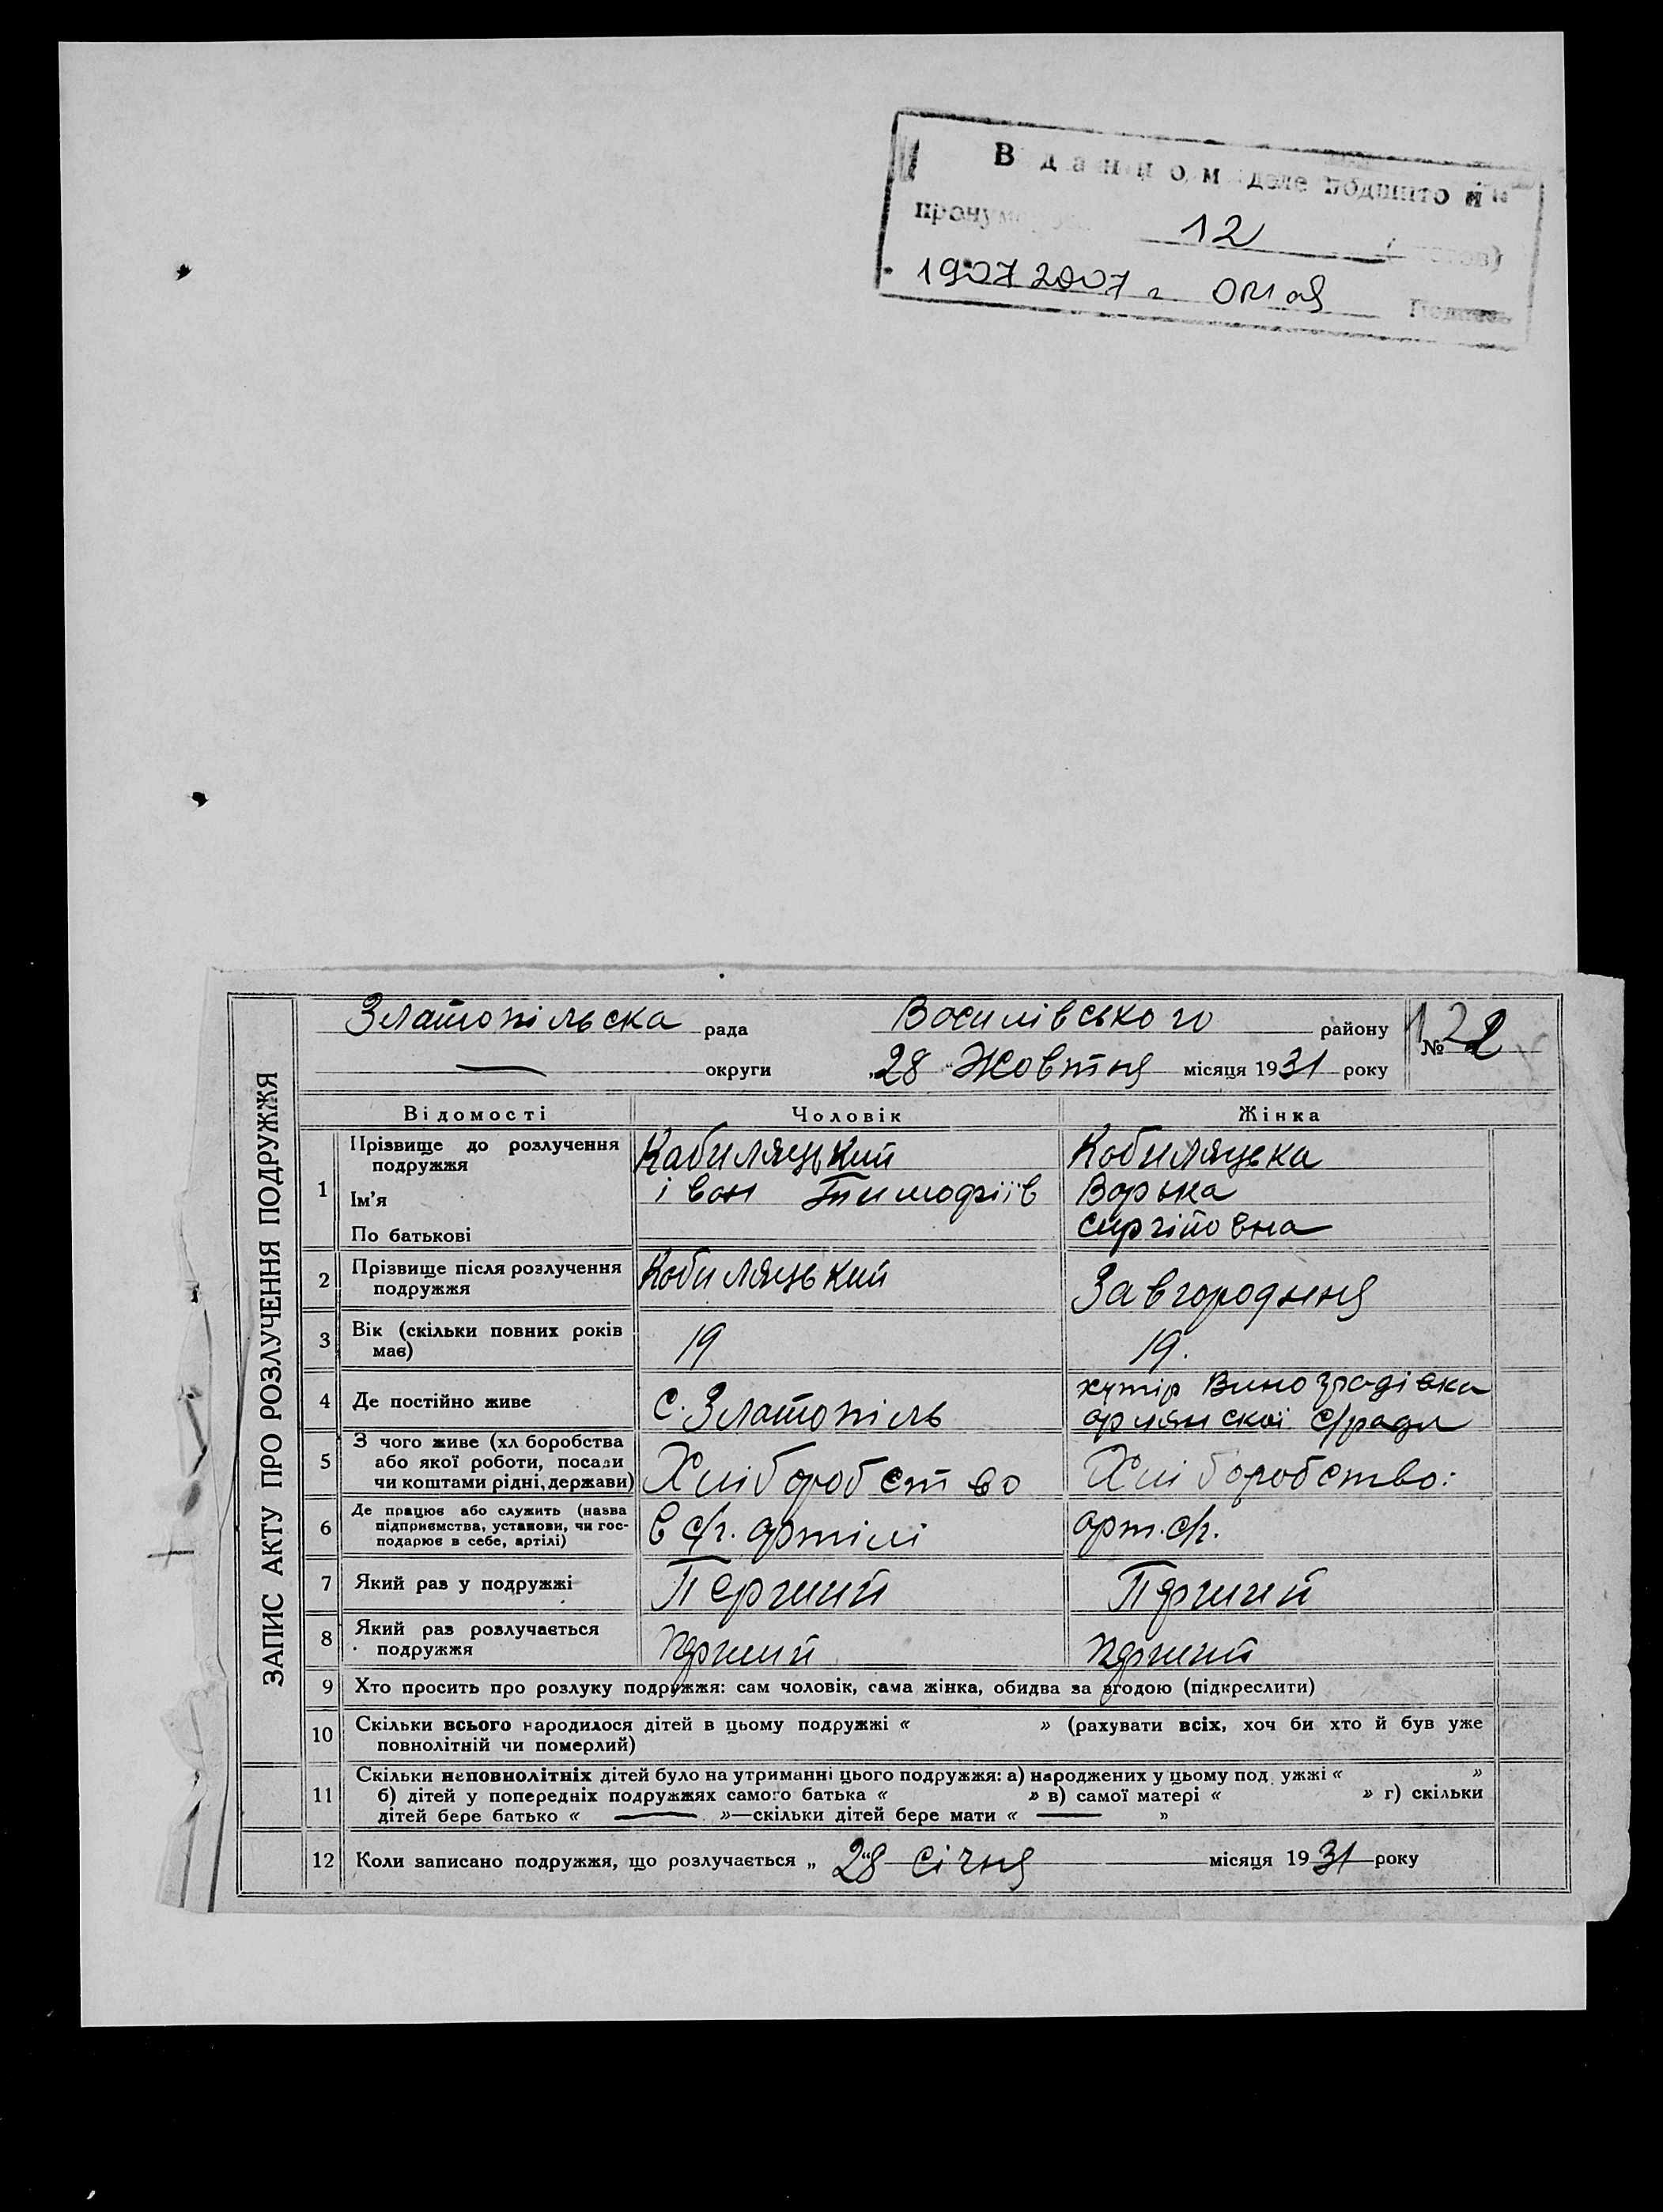 В данном деле подшито и
12
19 07 2007 г.
ЗАПИС АКТУ ПРО РОЗЛУЧЕННЯ ПОДРУЖЖЯ
Златопільска рада Восилівського району № 122
— округи „28“ Жовтня місяця 1931 року
Відомості Чоловік Жінка
1 Прізвище до розлучення подружжя Кабиляцький Кобиляцька
Ім'я івон Тимофіїв Ворька
По батькові сиргійовна
2 Прізвище після розлучення подружжя Кобиляцький Завгородння
3 Вік (скільки повних років має) 19 19.
4 Де постійно живе с. Златопіль хутір Виноградівка
орлянскої с/ради
5 З чого живе (хліборобства
або якої роботи, посади
чи коштами рідні, держави) Хліборобство Хліборобство:
6 Де працює або служить (назва
підприємства, установи, чи гос-
подарює в себе, артілі) в с/г. ортілі орт. с/г.
7 Який раз у подружжі Перший Перший
8 Який раз розлучається
подружжя перший перший
9 Хто просить про розлуку подружжя: сам чоловік, сама жінка, обидва за згодою (підкреслити)
10 Скільки всього народилося дітей в цьому подружжі « » (рахувати всіх, хоч би хто й був уже
повнолітній чи померлий)
11 Скільки неповнолітніх дітей було на утриманні цього подружжя: а) народжених у цьому подружжі « »
б) дітей у попередніх подружжях самого батька « » в) самої матері « » г) скільки
дітей бере батько « — »—скільки дітей бере мати « — »
12 Коли записано подружжя, що розлучається „28“ січня місяця 1931 року